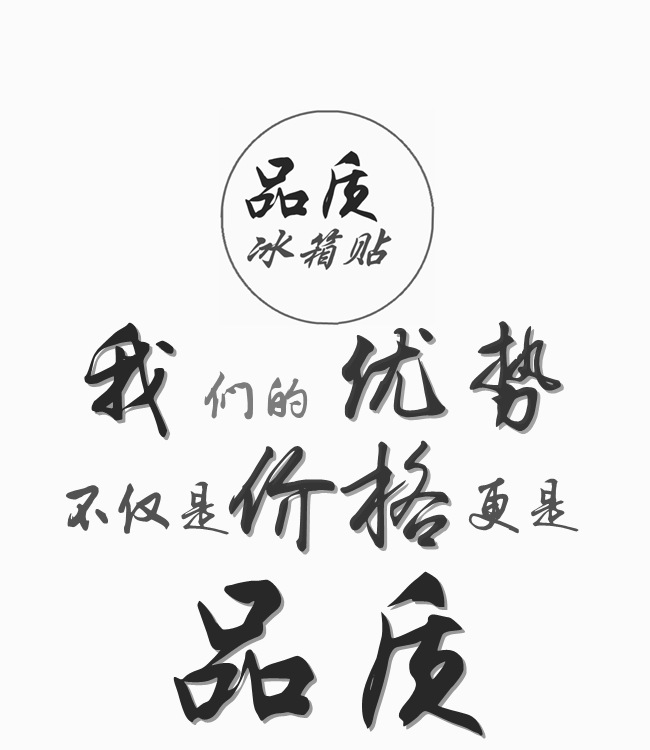 品质
冰箱贴
我们的优势
不仅是价格更是
品质